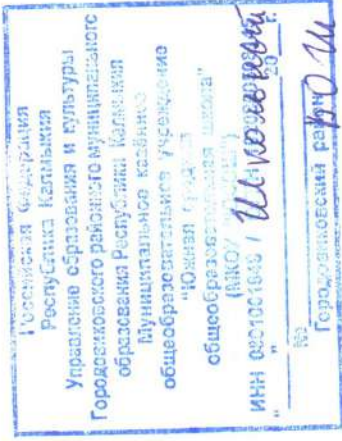 Российская Федерация
Республика Калмыкия
Управление образования и культуры
Городовиковского районного муниципального
образования Республики Калмыкия
Муниципальное казённое
общеобразовательное учреждение
"Южная средняя
общеобразовательная школа"
(МКОУ
ИНН / Школьный
" " 20 г.
№
Городовиковский район